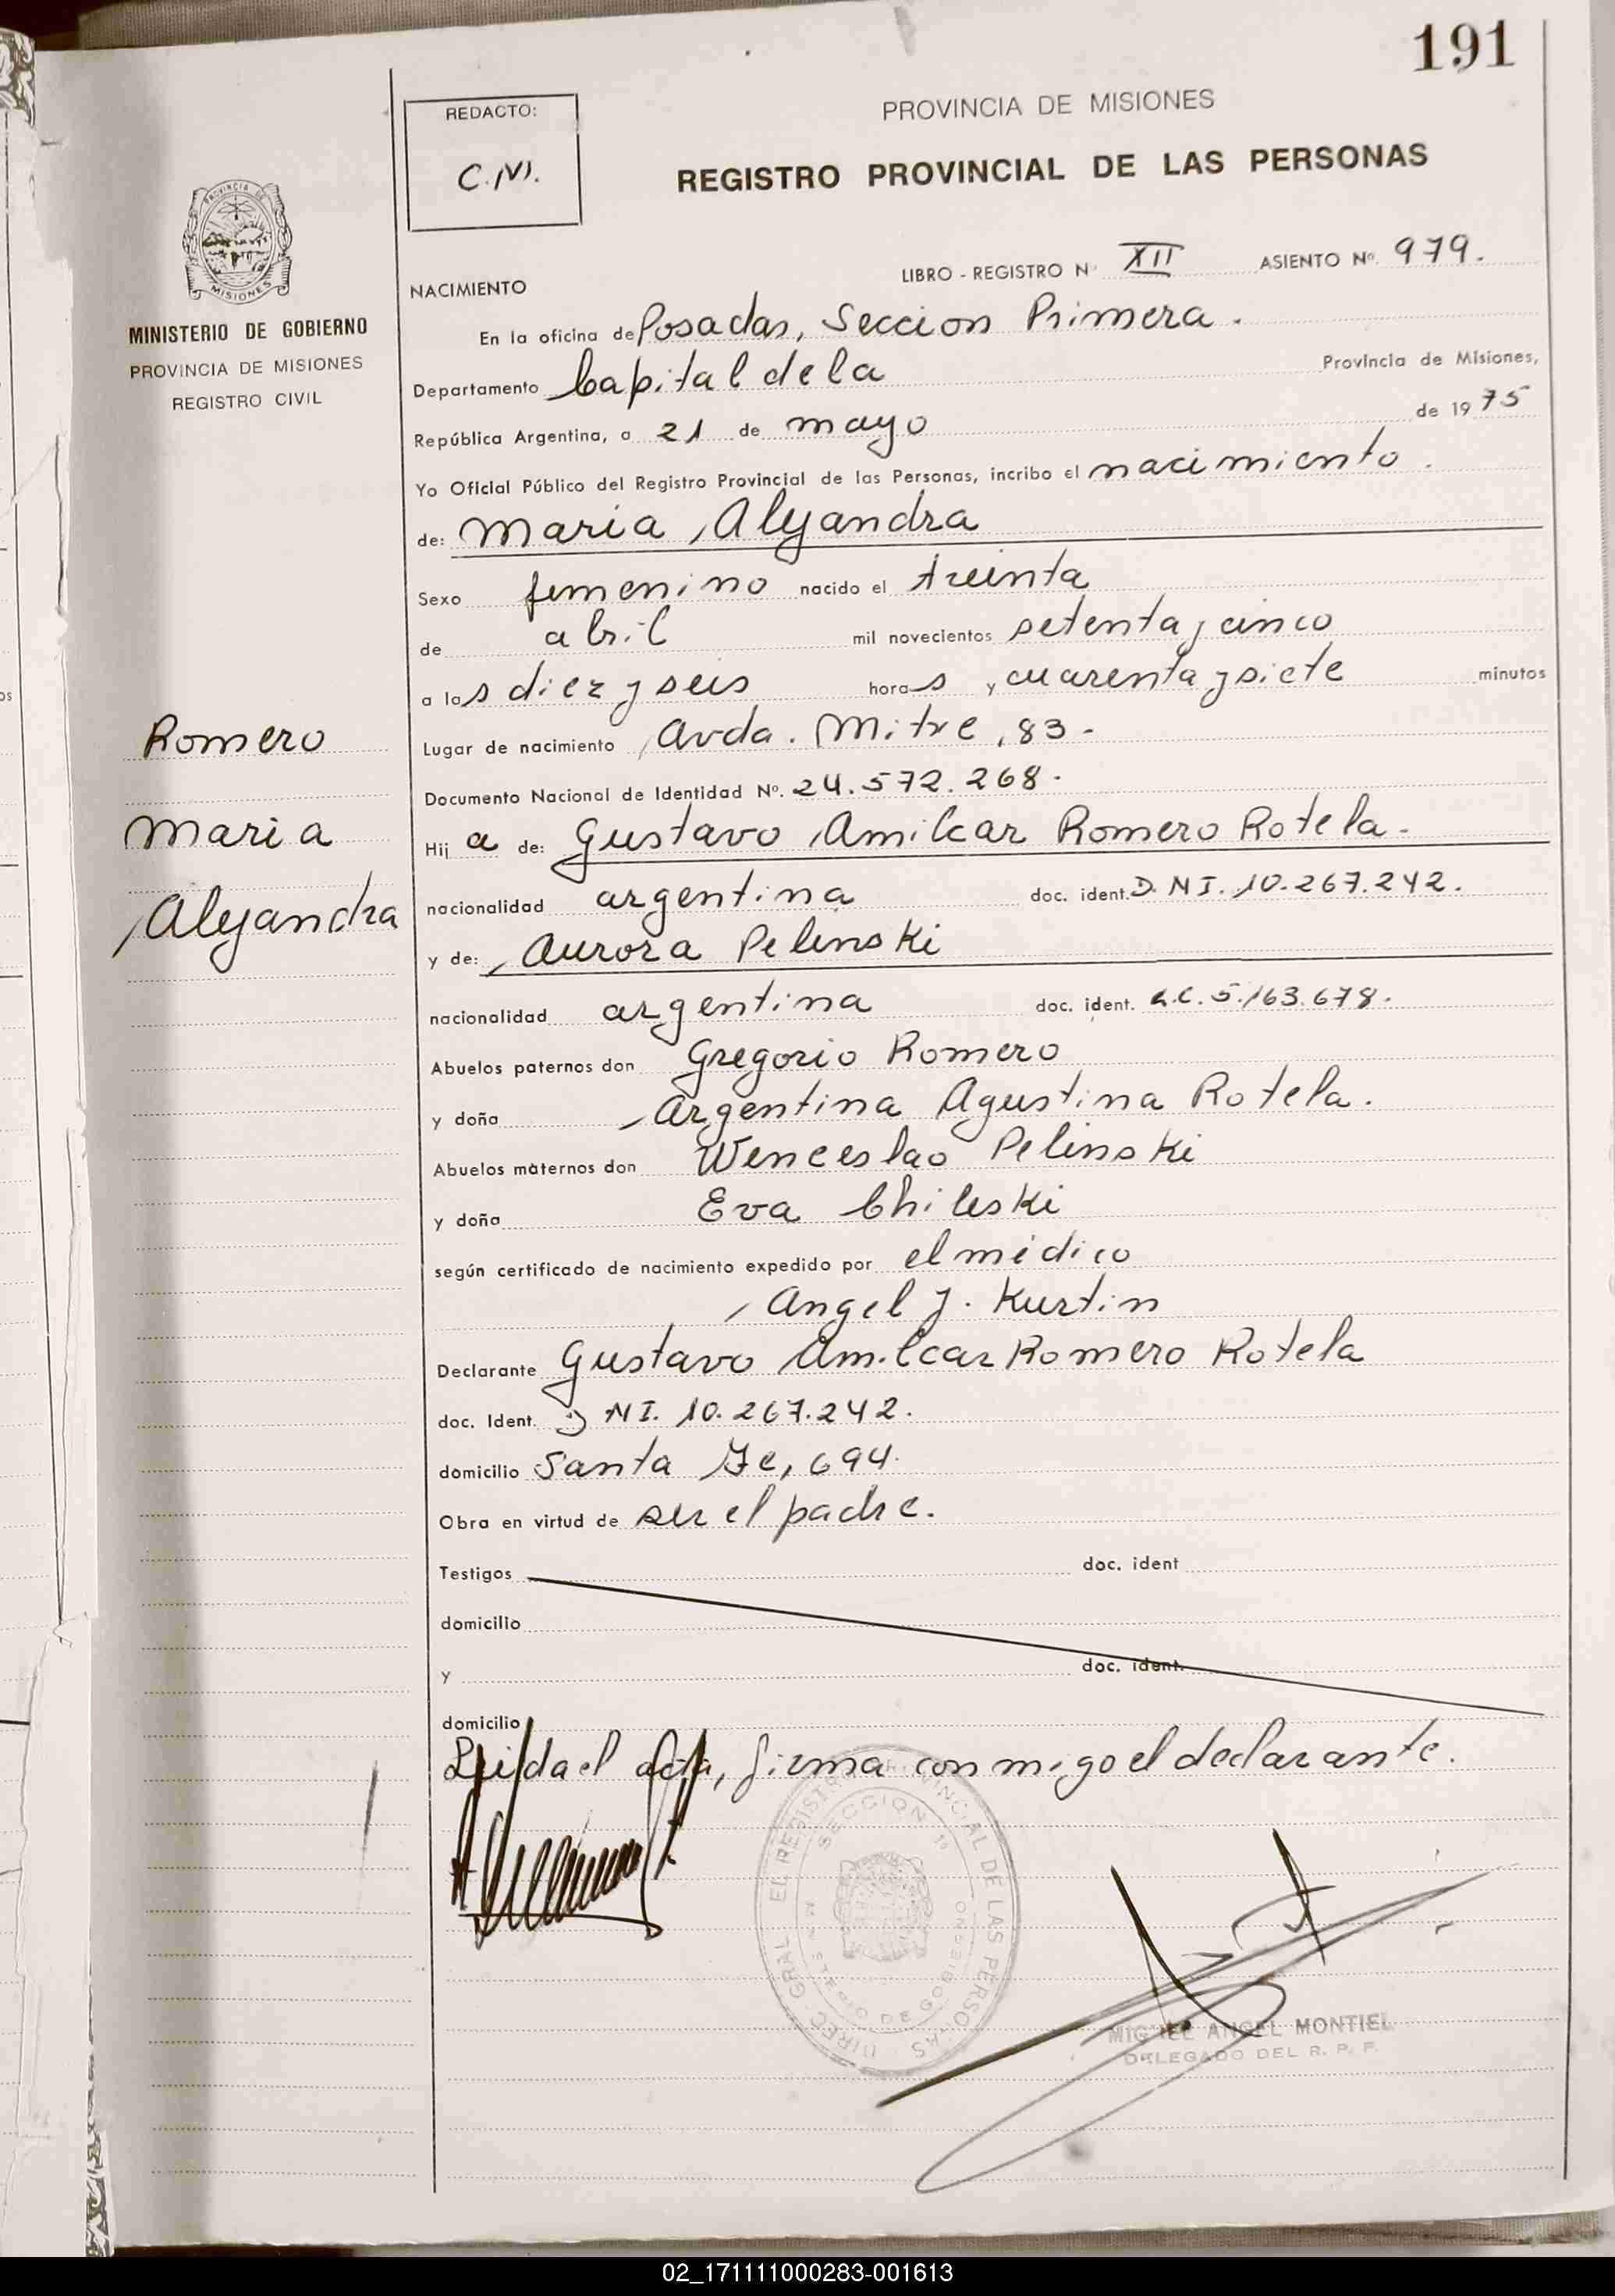 191
REDACTO:
C.M.
PROVINCIA DE MISIONES
REGISTRO PROVINCIAL DE LAS PERSONAS
MISIONES
MINISTERIO DE GOBIERNO
PROVINCIA DE MISIONES
REGISTRO CIVIL
LIBRO - REGISTRO Nº XII ASIENTO Nº 979.
NACIMIENTO
En la oficina de Posadas, Seccion Primera.
Departamento Capital de la Provincia de Misiones,
República Argentina, a 21 de mayo de 1975
Yo Oficial Público del Registro Provincial de las Personas, incribo el nacimiento.
de: Maria Alejandra
Sexo femenino nacido el treinta
de abril mil novecientos setenta y cinco
a las diez y seis horas y cuarenta y siete minutos
Lugar de nacimiento Avda. Mitre, 83-
Documento Nacional de Identidad Nº. 24.572.268.
Romero
Maria
Alejandra
Hija de: Gustavo Amilcar Romero Rotela.
nacionalidad argentina doc. ident. D.NI. 10.267.242.
y de: Aurora Pelinski
nacionalidad argentina doc. ident. L.C. 5.163.678.
Abuelos paternos don Gregorio Romero
y doña Argentina Agustina Rotela.
Abuelos maternos don Wenceslao Pelinski
y doña Eva Chileski
según certificado de nacimiento expedido por el médico
Angel J. Kurtin
Declarante Gustavo Amilcar Romero Rotela
doc. Ident. D NI. 10.267.242.
domicilio Santa Fe, 694.
Obra en virtud de ser el padre.
Testigos doc. ident
domicilio
y doc. ident.
domicilio
Leida el acta, firma conmigo el declarante.
DIREC. GRAL. EL REGISTRO PROVINCIAL DE LAS PERSONAS
SECCION 1ª
MIGUEL ANGEL MONTIEL
DELEGADO DEL R. P. P.
02_171111000283-001613